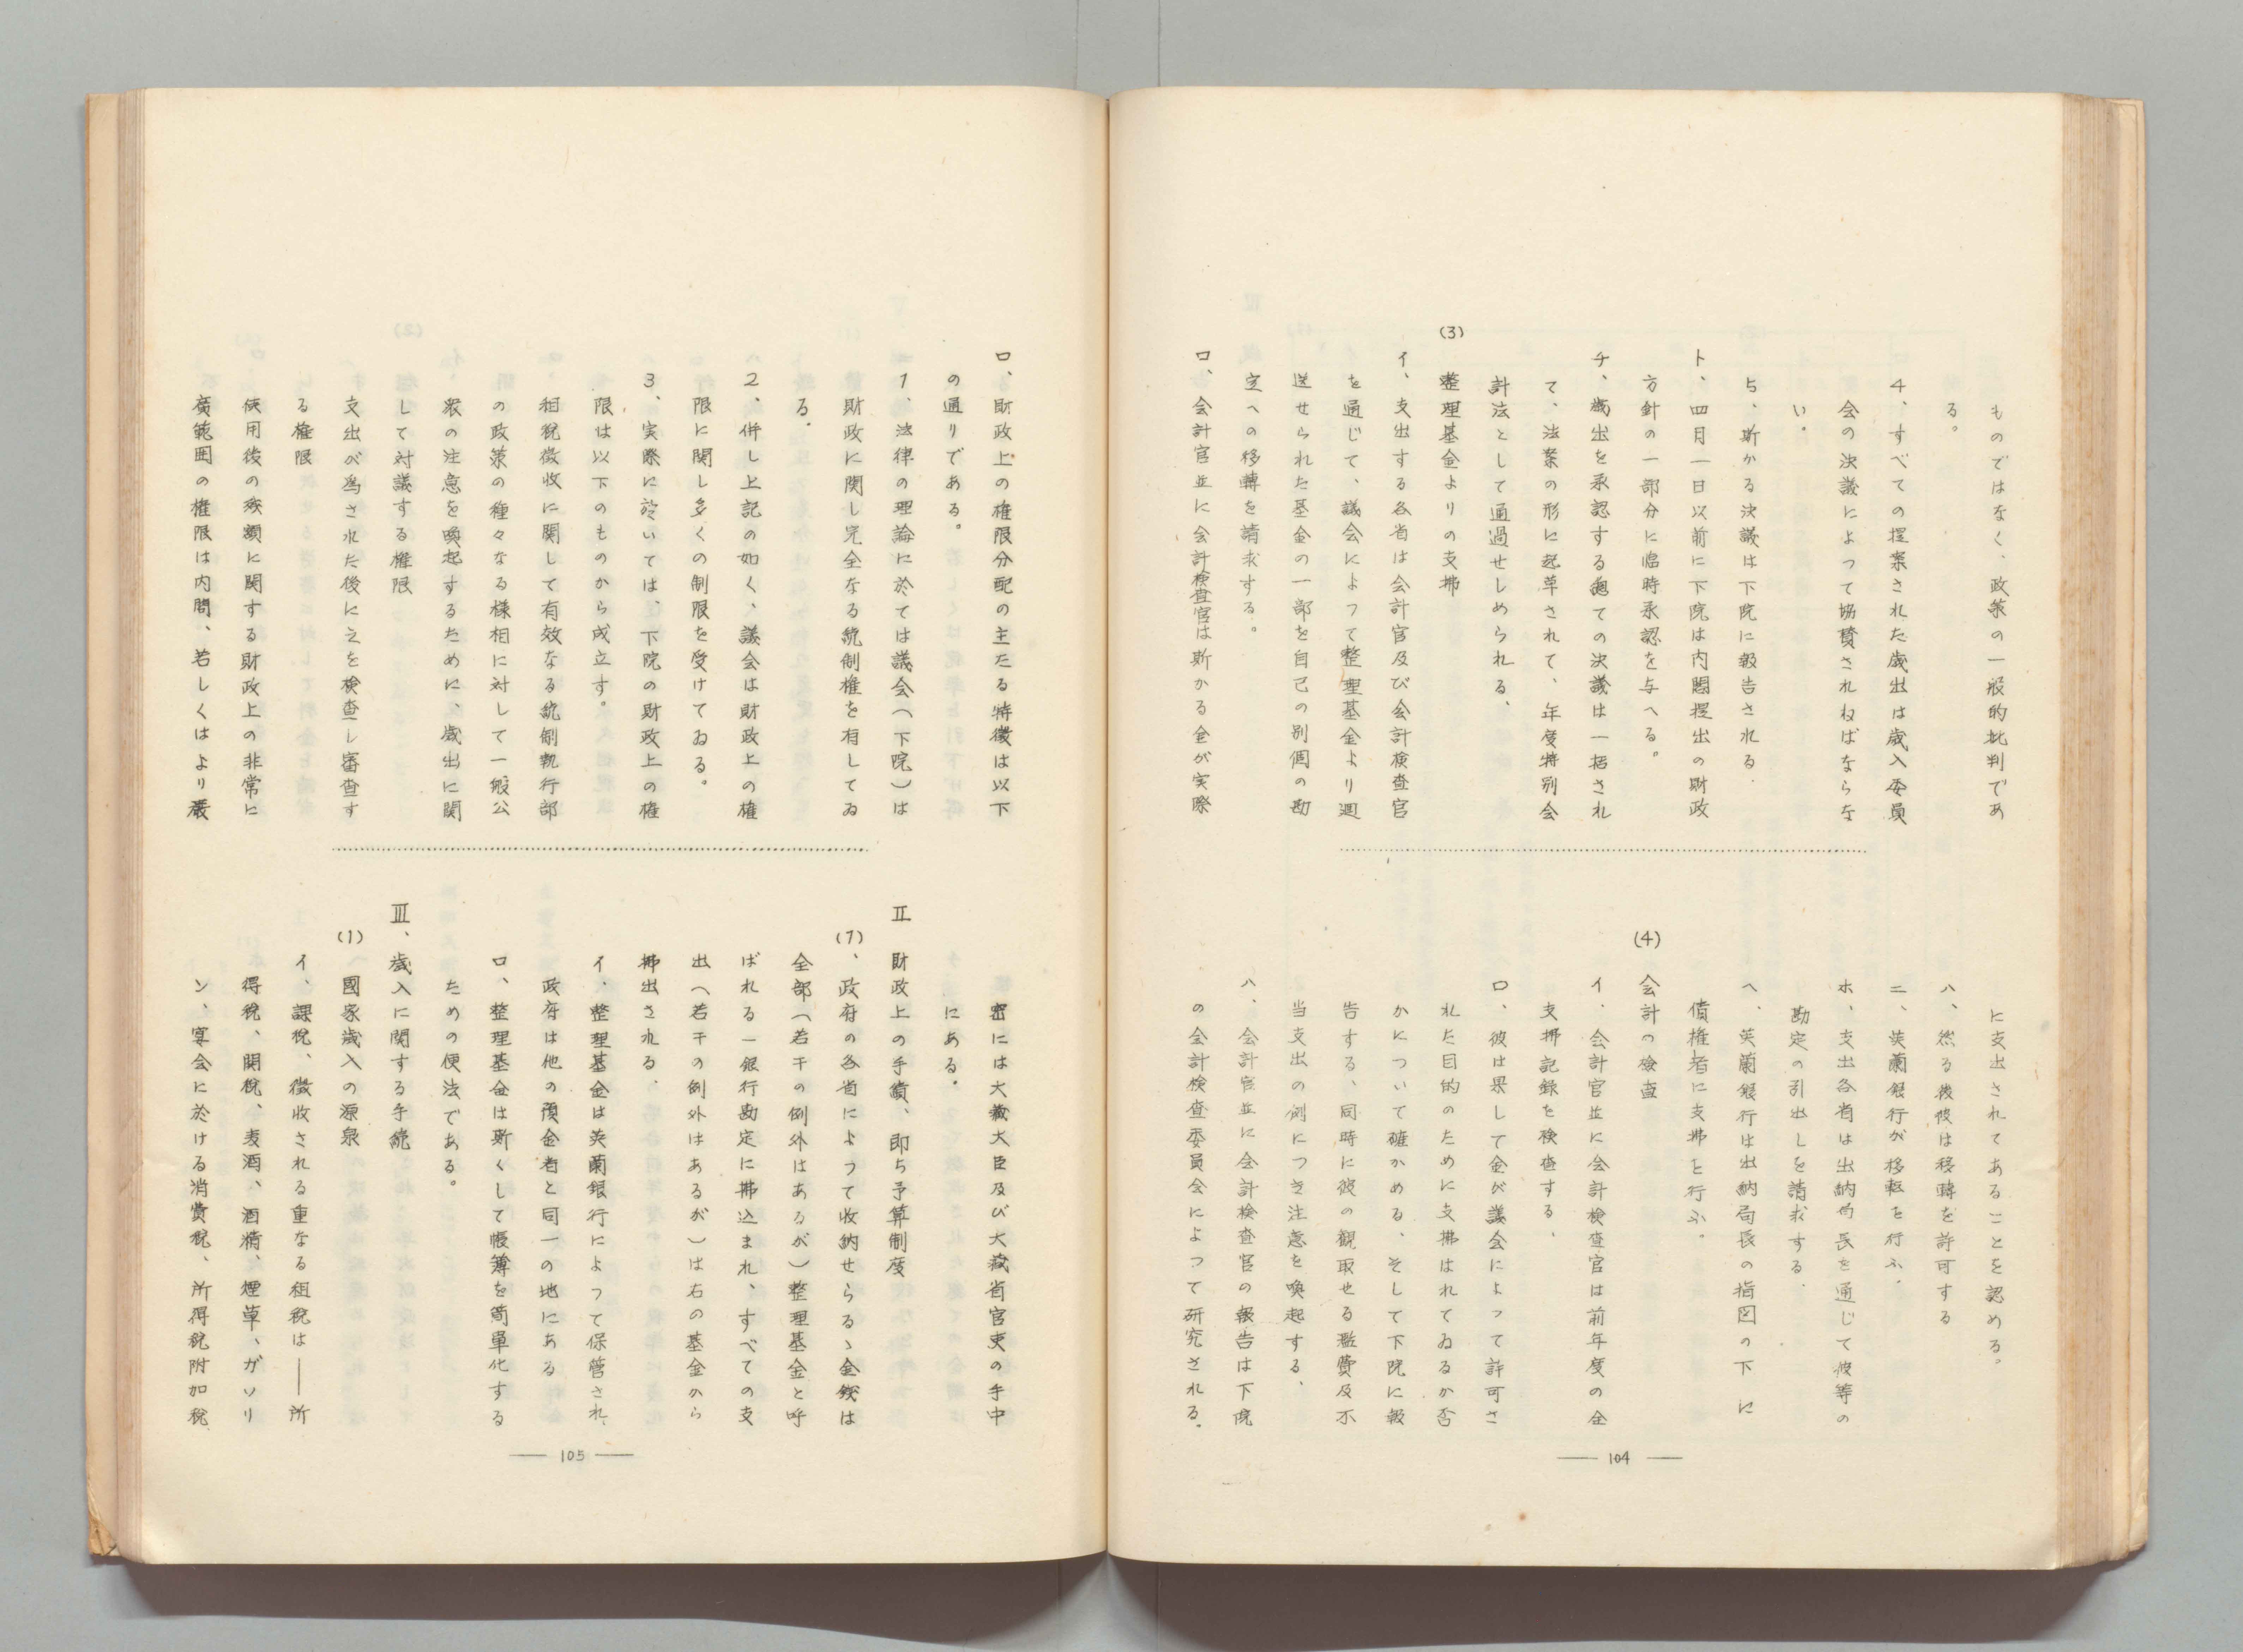 ものではなく、政策の一般的批判であ
る。
4、すべての提案された歳出は歳入委員
会の決議によって協賛されねばならな
い。
5、斯かる決議は下院に報告される．
ト、四月一日以前に下院は内閣提出の財政
方針の一部分に臨時承認を与へる。
チ、歳出を承認する総ての決議は一括され
て、法案の形に起草されて、年度特別会
計法として通過せしめられる、
(3) 整理基金よりの支拂
イ、支出する各省は会計官及び会計検査官
を通じて、議会によって整理基金より廻
送せられた基金の一部を自己の別個の勘
定への移轉を請求する。
ロ、会計官並に会計検査官は斯かる金が実際
に支出されてあることを認める。
ハ、然る後彼は移轉を許可する
ニ、英蘭銀行が移転を行ふ．
ホ、支出各省は出納局長を通じて彼等の
勘定の引出しを請求する．
ヘ、英蘭銀行は出納局長の指図の下に
債権者に支拂を行ふ。
(4) 会計の検査
イ．会計官並に会計検査官は前年度の全
支拂記録を検査する、
ロ、彼は果して金が議会によって許可さ
れた目的のために支拂はれてゐるか否
かについて確かめる、そして下院に報
告する、同時に彼の観取せる濫費及不
当支出の例につき注意を喚起する、
ハ、会計官並に会計検査官の報告は下院
の会計検査委員会によつて研究される．
— 104 —
ロ、財政上の権限分配の主たる特徴は以下
の通りである。
1、法律の理論に於ては議会（下院）は
財政に関し完全なる統制権を有してゐ
る．
2、併し上記の如く、議会は財政上の権
限に関し多くの制限を受けてゐる。
3、実際に於いては、下院の財政上の権
限は以下のものから成立す。
租税徴収に関して有效なる統制執行部
の政策の種々なる様相に対して一般公
衆の注意を喚起するために、歳出に関
して対議する権限
支出が為された後に之を検査し審査す
る権限
使用後の残額に関する財政上の非常に
廣範囲の権限は内閣、若しくはより嚴
密には大蔵大臣及び大蔵省官吏の手中
にある．
Ⅱ 財政上の手續、即ち予算制度
(1)、政府の各省によつて收納せらるゝ金銭は
全部（若干の例外はあるが）整理基金と呼
ばれる一銀行勘定に拂込まれ、すべての支
出（若干の例外はあるが）は右の基金から
拂出される．
イ．整理基金は英蘭銀行によつて保管され
政府は他の預金者と同一の地にある
ロ、整理基金は斯くして帳簿を簡單化する
ための便法である。
Ⅲ、歳入に関する手続
(1) 國家歳入の源泉
イ、課税、徴收される重なる租税は——所
得税、関税、麦酒、酒精、煙草、ガソリ
ン、宴会に於ける消費税、所得税附加税
— 105 —